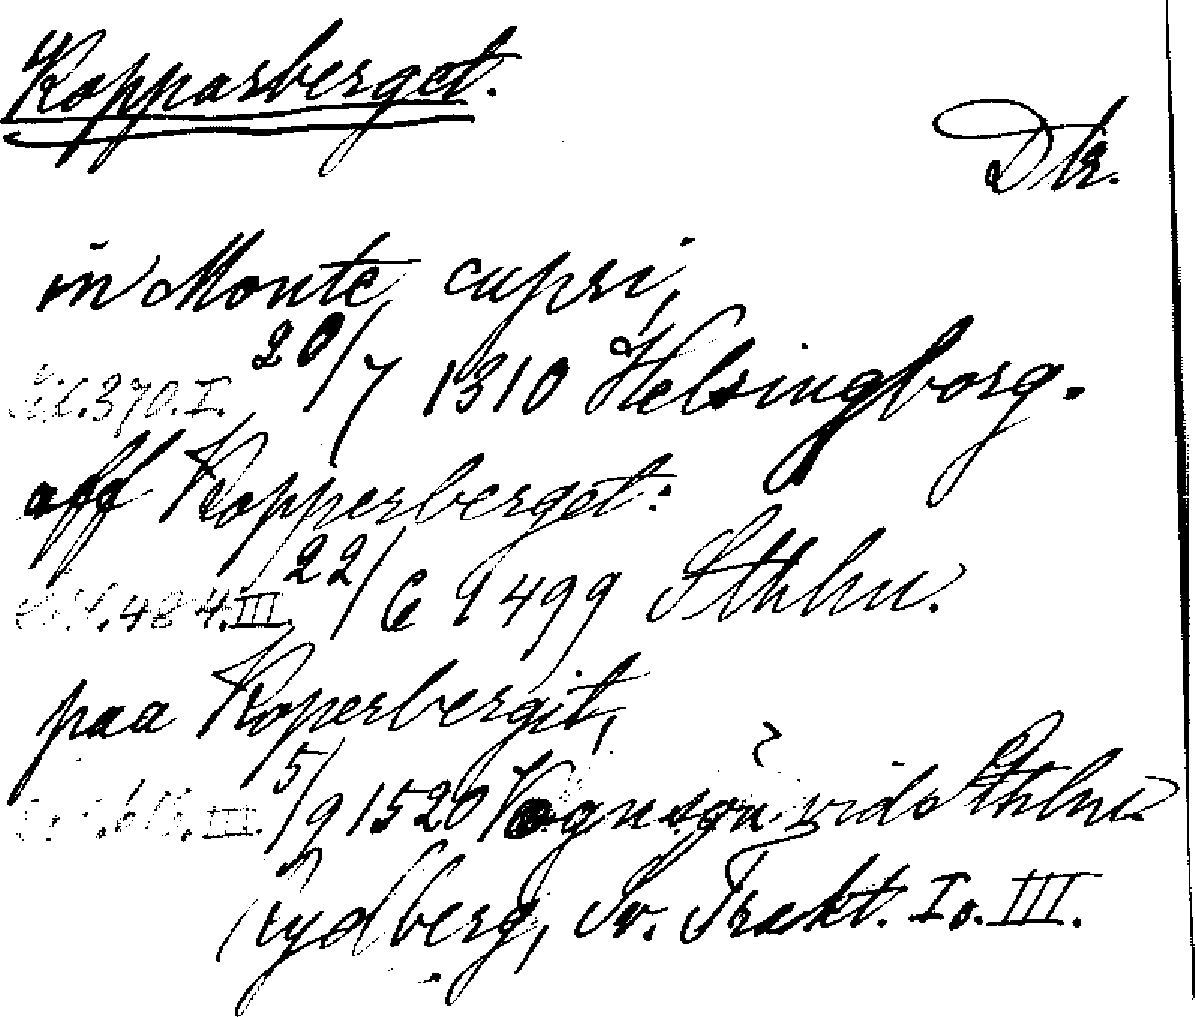 Kopparberget.
Dlr.
in Monte cupri,
Sid. 370. I. 20/7 1310 Helsingborg.
aff Kopperberget:
Sid. 484. III. 22/6 1499 Sthlm.
paa Koperbergit,
618. III. 5/9 1520 vid Sthlm
Rydberg, Sv. Trakt. I o. III.